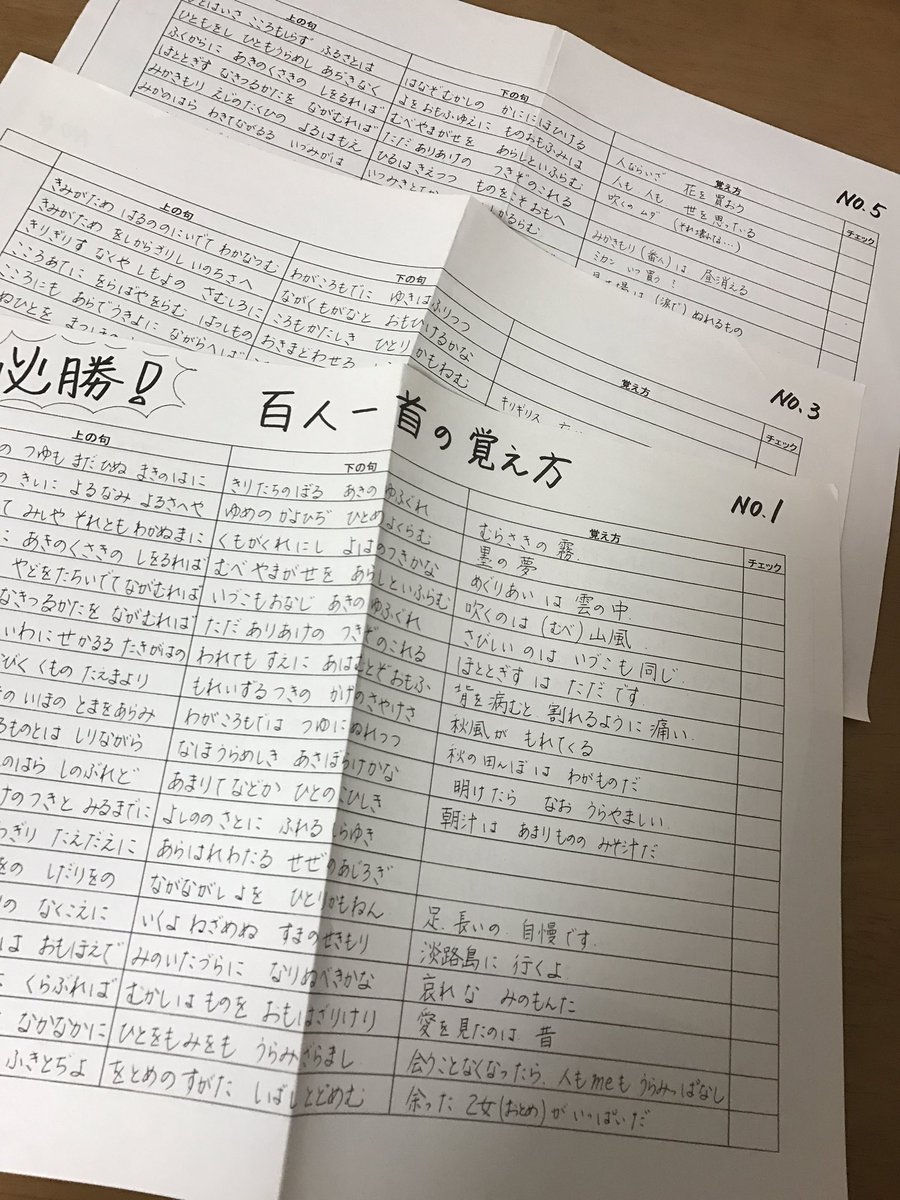 上の句 下の句 覚え方 チェック NO.5
こころもしらず ふるさとは はなぞむかしの かににほひける 人ならいざ 花を買おう
ひともをし ひともうらめし あぢきなく よをおもふゆえに ものおもふみは 人も 人も 世を思っている
ふくからに あきのくさきの しをるれば むべやまがぜを あらしといふらむ 吹くのムダ (それ嫌でな…)
ほととぎす なきつるかたを ながむれば ただありあけの つきぞのこれる
みかきもり えじのたくひの よるはもえ ひるはきえつつ ものをこそおもへ みかきもり(番人)は 昼消える
みかのはら わきてながるる いつみがは いつみきとてか ミカン いつ買う?
ぬれるもの
上の句 下の句 覚え方 チェック NO.3
きみがため はるののにいでて わかなつむ わがころもでに ゆきはふりつつ
きみがため をしからざりし いのちさへ ながくもがなと おもひけるかな
きりぎりす なくや しもよの さむしろに ころもかたしき ひとりかもねむ キリギリス
こころあてに をらばやをらむ はつしもの おきまどわせる
こころにも あらでうきよに ながらへば
必勝! 百人一首の覚え方 NO.1
上の句 下の句 覚え方 チェック
つゆも まだひぬ まきのはに きりたちのぼる あきのゆふぐれ むらさきの 霧
きしに よるなみ よるさへや ゆめの かよひぢ ひとめよくらむ 墨の夢
みしや それとも わかぬまに くもがくれにし よはのつきかな めぐりあい は 雲の中
あきのくさきの しをるれば むべ やまがぜを あらしといふらむ 吹くのは (むべ) 山風
やどをたちいでてながむれば いづこもおなじ あきのゆふぐれ さびしいのは いづこも同じ
なきつるかたを ながむれば ただ ありあけの つきぞのこれる ほととぎすは ただです
いわにせかるる たきがはの われても すえに あはむとぞおもふ 背を病むと 割れるように痛い
びく くもの たえまより もれいずる つきの かげのさやけさ 秋風が もれてくる
いほの とまをあらみ わがころもでは つゆにぬれつつ 秋の田んぼは わがものだ
るものとは しりながら なほうらめしき あさぼらけかな 明けたら なお うらやましい
のはら しのぶれど あまりてなどか ひとのこひしき 朝汁は あまりものの みそ汁だ
けのつきと みるまでに よしののさとに ふれるしらゆき
ぎり たえだえに あらはれわたる せぜのあじろぎ
をの しだりをの ながながしよを ひとりかもねん 足、長いの 自慢です
なくこえに いくよ ねざめぬ すまのせきもり 淡路島に 行くよ
は おもほえで みのいたづらに なりぬべきかな 哀れな みのもんた
くらぶれば むかしは ものを おもはざりけり 愛を見たのは 昔
なかなかに ひとをもみをも うらみざらまし 会うことなくなったら、人もmeも うらみっぱなし
ふきとぢよ をとめのすがた しばしとどめむ 余った 乙女(おとめ)が いっぱいだ